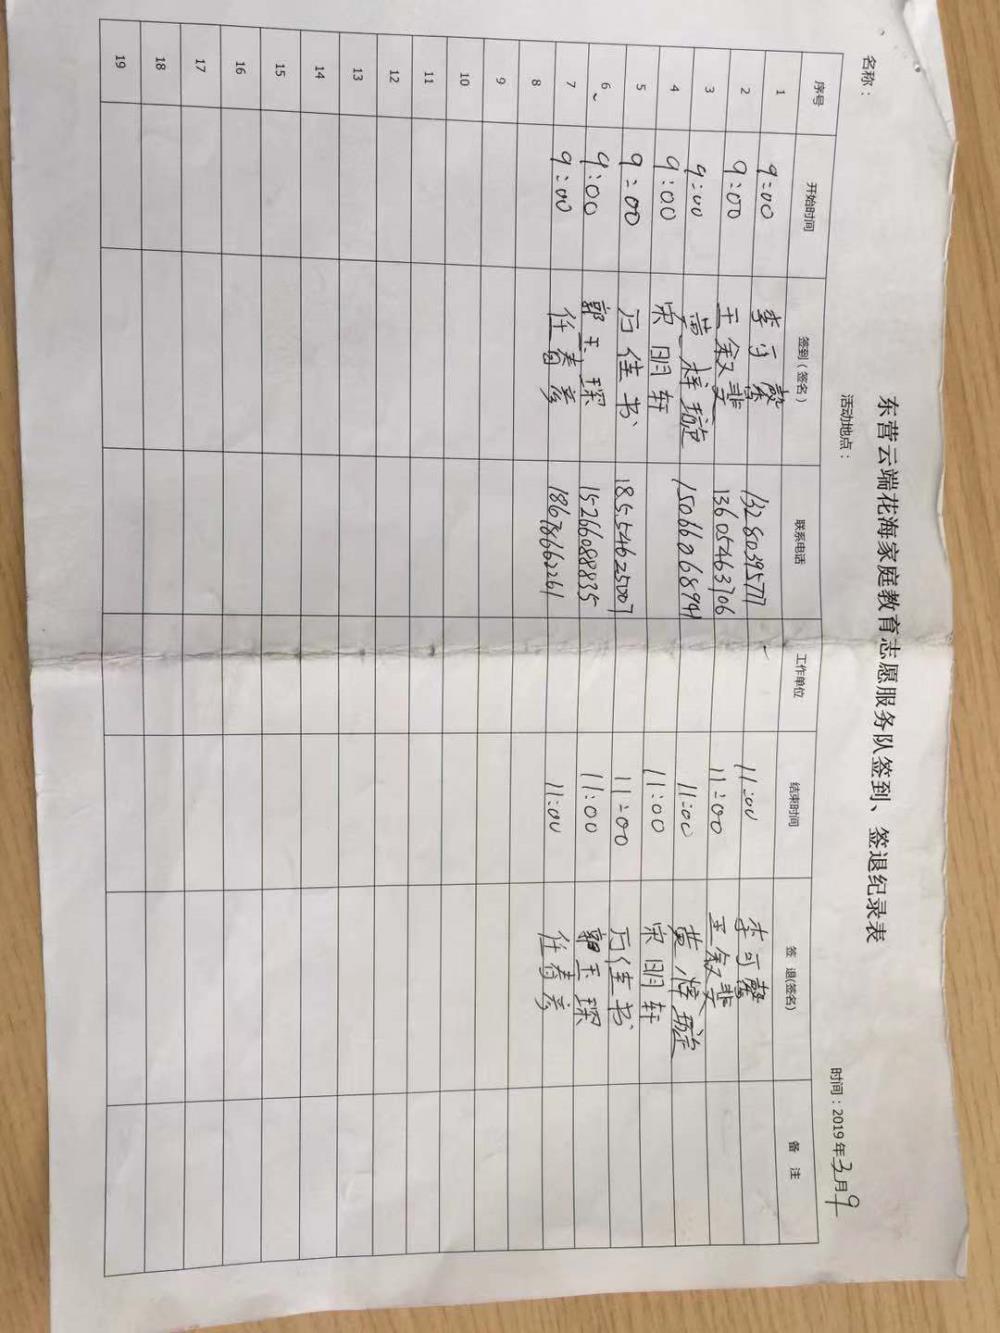 东营云端花海家庭教育志愿服务队签到、签退纪录表
名称： 活动地点： 时间：2019年3月9
序号 开始时间 签到（签名） 联系电话 工作单位 结束时间 签 退(签名) 备 注
1 9:00 李可馨 13280395777 11:00 李可馨
2 9:00 王叙斐 13605463706 11:00 王叙斐
3 9:00 黄梓璇 15066068941 11:00 黄梓璇
4 9:00 宋明轩 11:00 宋明轩
5 9:00 万佳书 18554625007 11:00 万佳书
6 9:00 郭玉琛 15266088835 11:00 郭玉琛
7 9:00 任春彦 18678662261 11:00 任春彦
8
9
10
11
12
13
14
15
16
17
18
19